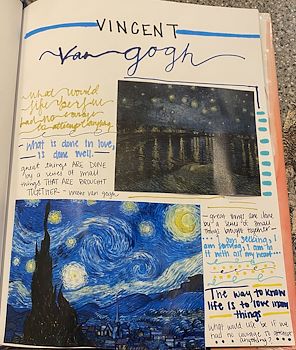 VINCENT
Van gogh
what would
life be if we
had no courage
to attempt anything
what is done in love,
is done well.
great things ARE DONE
by a series of small
things THAT ARE BROUGHT
TOGETHER - vincent van gogh
great things are done
by a series of small
things brought together
I am seeking, I
am striving, I am in
it with all my heart
The way to know
life is to love many
things
what would life be if we
had no courage to attempt
anything?